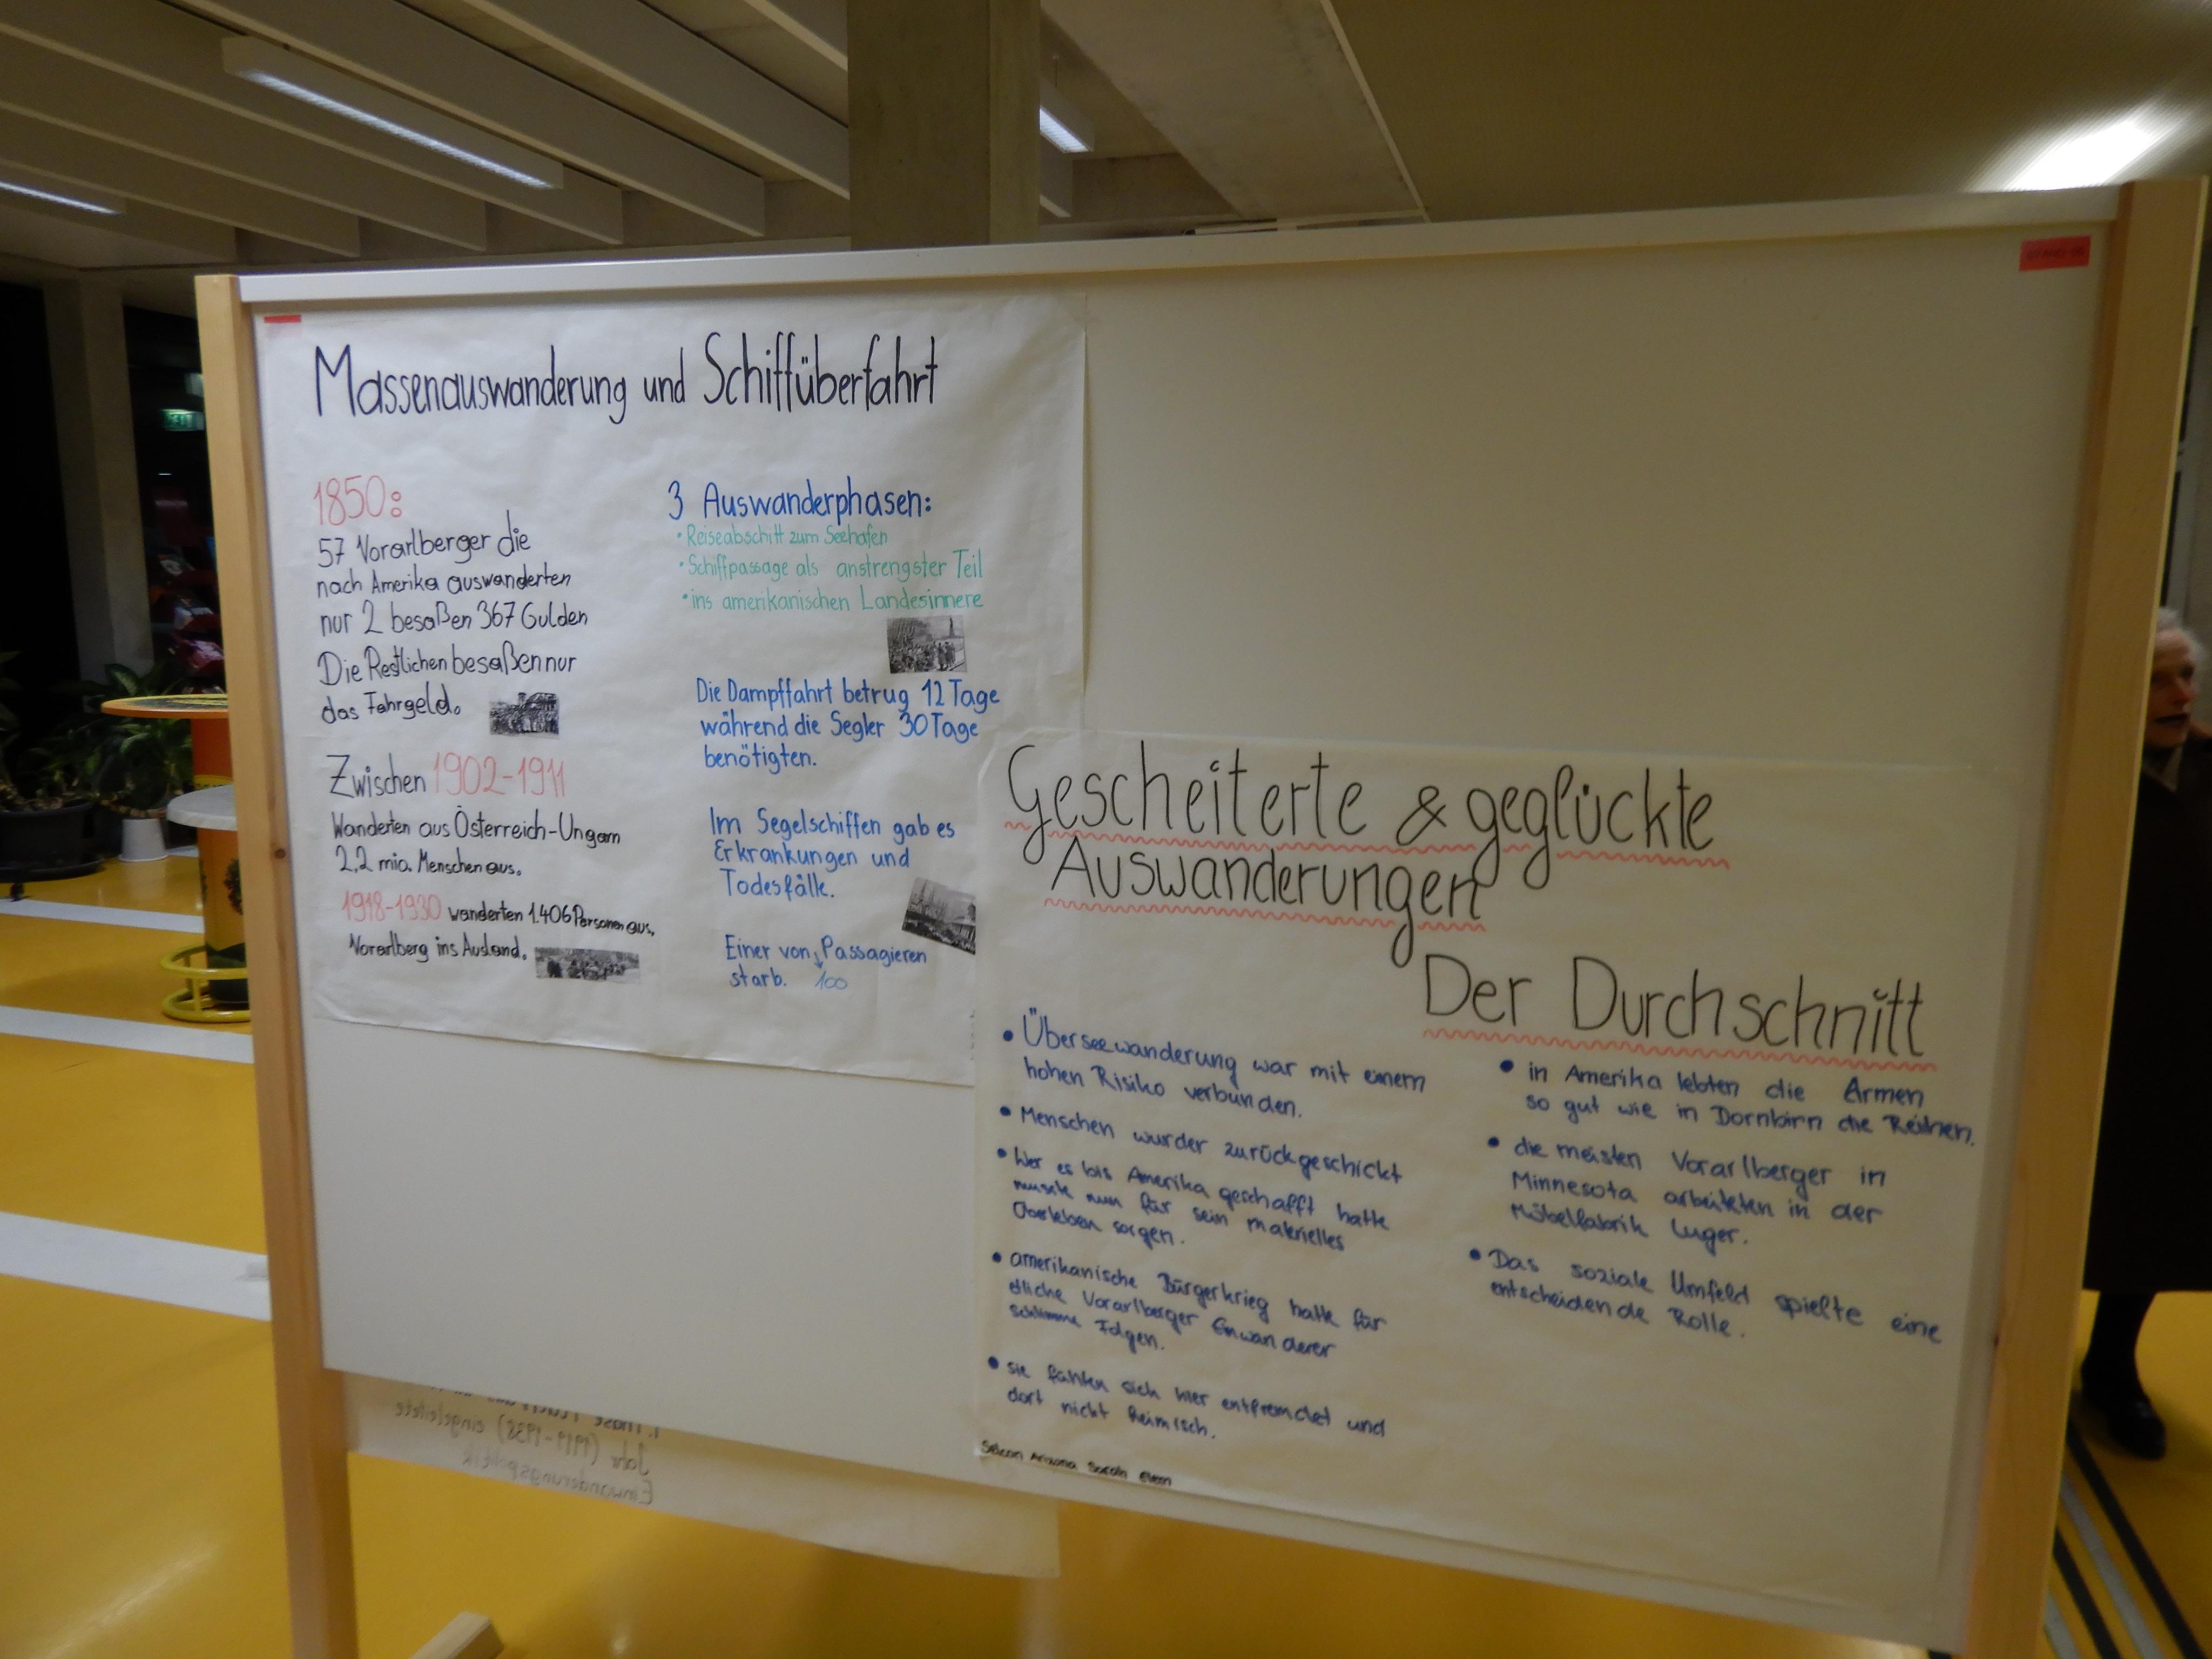 Massenauswanderung und Schiffüberfahrt
1850:
57 Vorarlberger die
nach Amerika auswanderten
nur 2 besaßen 367 Gulden
Die Restlichen besaßen nur
das Fahrgeld.
Zwischen 1902-1911
Wanderten aus Österreich-Ungarn
2,2 mio. Menschen aus.
1918-1930 wanderten 1.406 Personen aus,
Vorarlberg ins Ausland.
3 Auswanderphasen:
• Reiseabschitt zum Seehafen
• Schiffpassage als anstrengster Teil
• ins amerikanischen Landesinnere
Die Dampffahrt betrug 12 Tage
während die Segler 30 Tage
benötigten.
Im Segelschiffen gab es
Erkrankungen und
Todesfälle.
Einer von Passagieren
starb. 100
Gescheiterte & geglückte
Auswanderungen
• Überseewanderung war mit einem
hohen Risiko verbunden.
• Menschen wurder zurückgeschickt
• Wer es bis Amerika geschafft hatte
musste nun für sein materielles
sorgen.
• amerikanische Bürgerkrieg hatte für
etliche Vorarlberger Einwanderer
schlimme Folgen.
• sie fühlten sich hier entfremdet und
dort nicht heimisch.
Der Durchschnitt
• in Amerika lebten die Armen
so gut wie in Dornbirn die Reichen.
• die meisten Vorarlberger in
Minnesota arbeiteten in der
Möbelfabrik Luger.
• Das soziale Umfeld spielte eine
entscheidende Rolle.
Arizona
Jahr (1919-1938) eingeleitete
Einwanderungspolitik